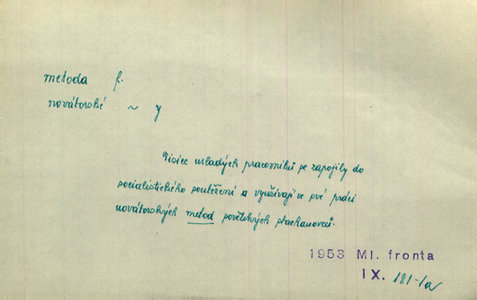 metoda f.
novátorské ~ y
Tisíce mladých pracovníků se zapojily do
socialistického soutěžení a využívají ve své práci
novátorských metod sovětských stachanovců.
1953 Ml. fronta
IX. 181-1a